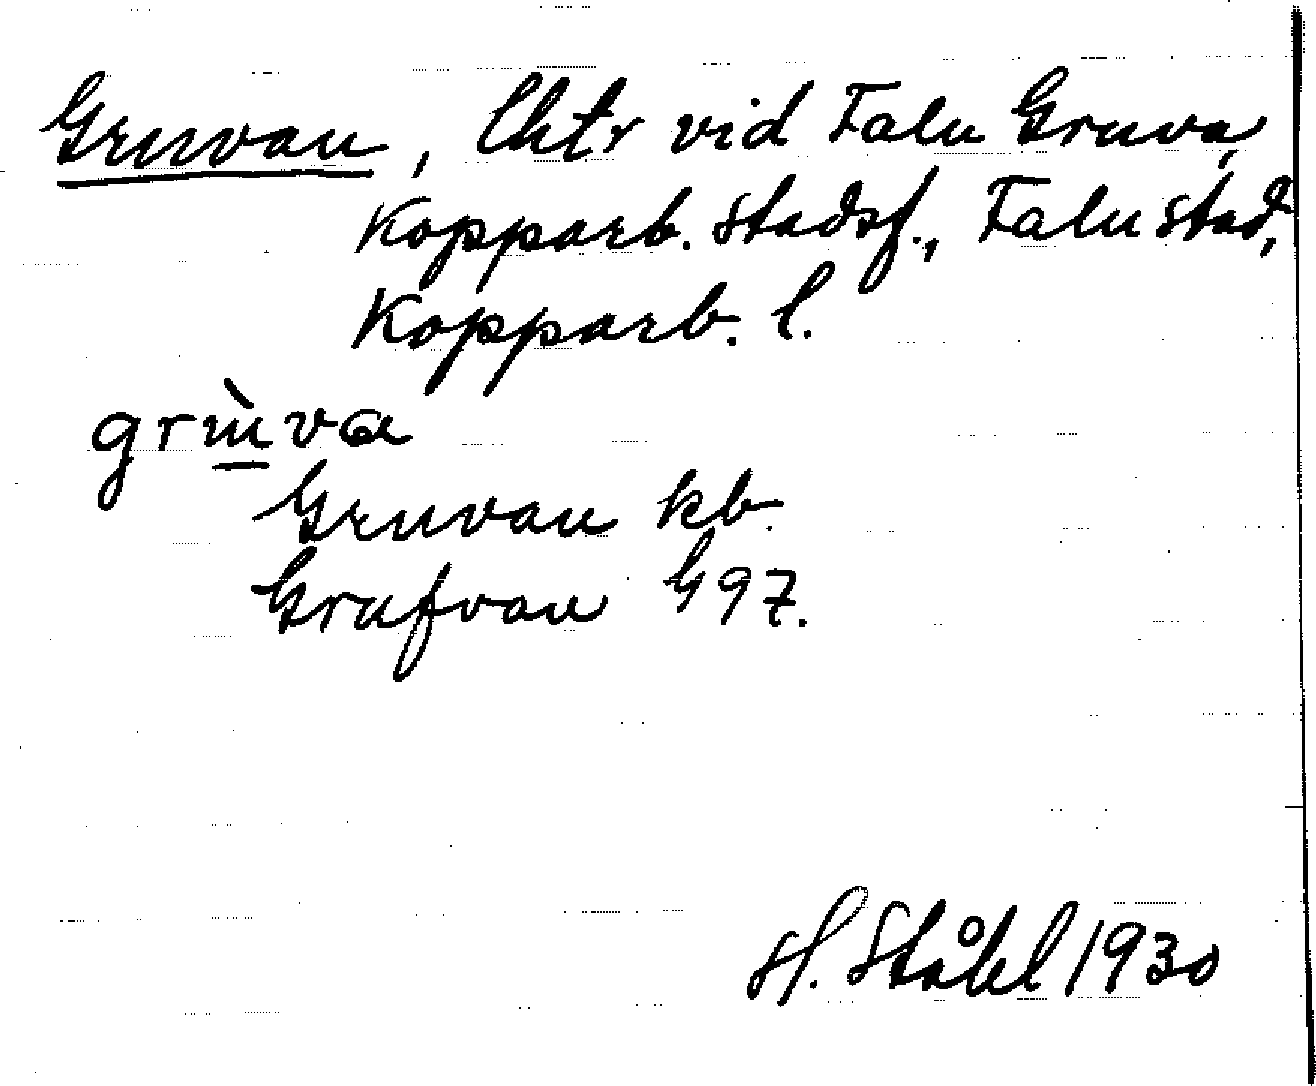 Gruvan, lht, vid Falu Gruva,
Kopparb. stadsf., Falu stad,
Kopparb. l.
grùva
Gruvan kb.
Grufvan G 97.
H. Ståhl 1930